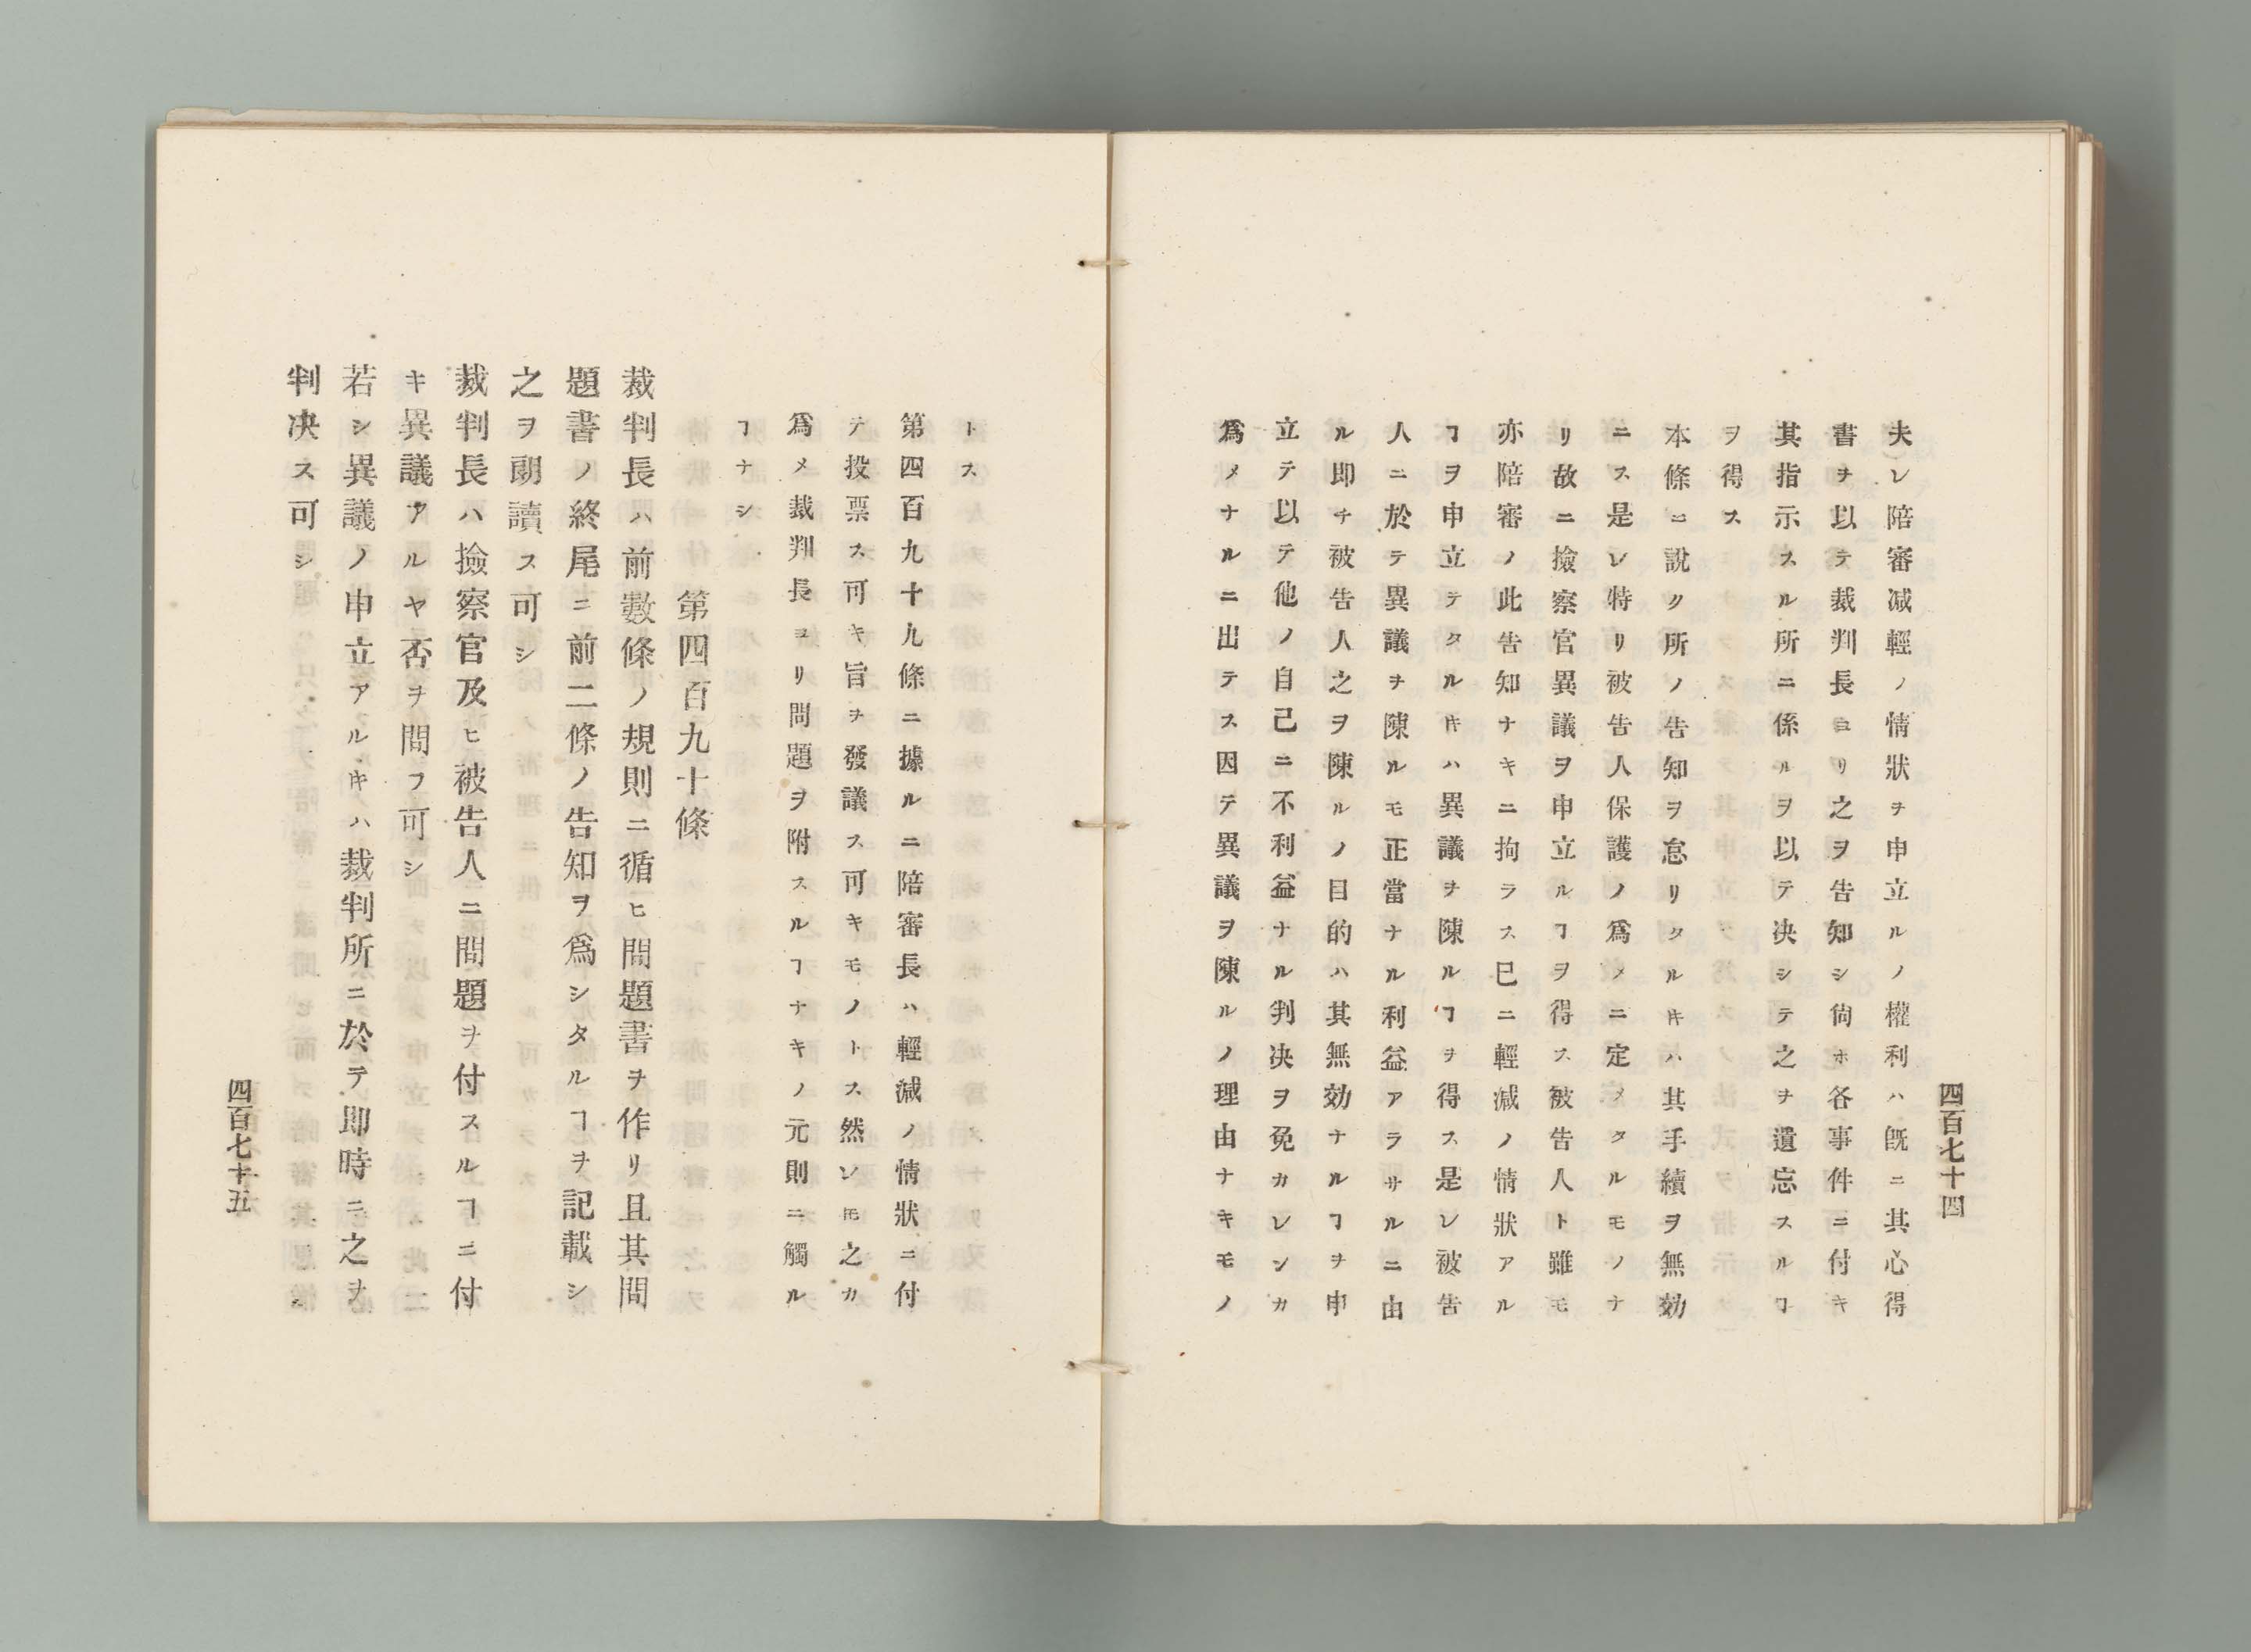 四百七十四
夫レ陪審減輕ノ情狀ヲ申立ルノ權利ハ既ニ其心得
書ヲ以テ裁判長ヨリ之ヲ告知シ尙ホ各事件ニ付キ
其指示スル所ニ係ルヲ以テ決シテ之ヲ遺忘スルヿ
ヲ得ス
本條ニ說ク所ノ告知ヲ怠リタルキハ其手續ヲ無効
ニス是レ特リ被告人保護ノ爲メニ定メタルモノナ
リ故ニ撿察官異議ヲ申立ルヿヲ得ス被告人ト雖モ
亦陪審ノ此告知ナキニ拘ラス已ニ輕減ノ情狀アル
ヿヲ申立テタルキハ異議ヲ陳ルヿヲ得ス是レ被告
人ニ於テ異議ヲ陳ルモ正當ナル利益アラサルニ由
ル卽チ被告人之ヲ陳ルノ目的ハ其無効ナルヿヲ申
立テ以テ他ノ自己ニ不利益ナル判决ヲ免カレンカ
爲メナルニ出テス因テ異議ヲ陳ルノ理由ナキモノ
トス
第四百九十九條ニ據ルニ陪審長ハ輕減ノ情狀ニ付
テ投票ス可キ旨ヲ發議ス可キモノトス然レ𪜈之カ
爲メ裁判長ヨリ問題ヲ附スルヿナキノ元則ニ觸ル
ヿナシ
第四百九十條
裁判長ハ前數條ノ規則ニ循ヒ問題書ヲ作リ且其問
題書ノ終尾ニ前二條ノ告知ヲ爲シタルヿヲ記載シ
之ヲ朗讀ス可シ
裁判長ハ撿察官及ヒ被告人ニ問題ヲ付スルヿニ付
キ異議アルヤ否ヲ問フ可シ
若シ異議ノ申立アルキハ裁判所ニ於テ卽時ニ之ヲ
判决ス可シ
四百七十五